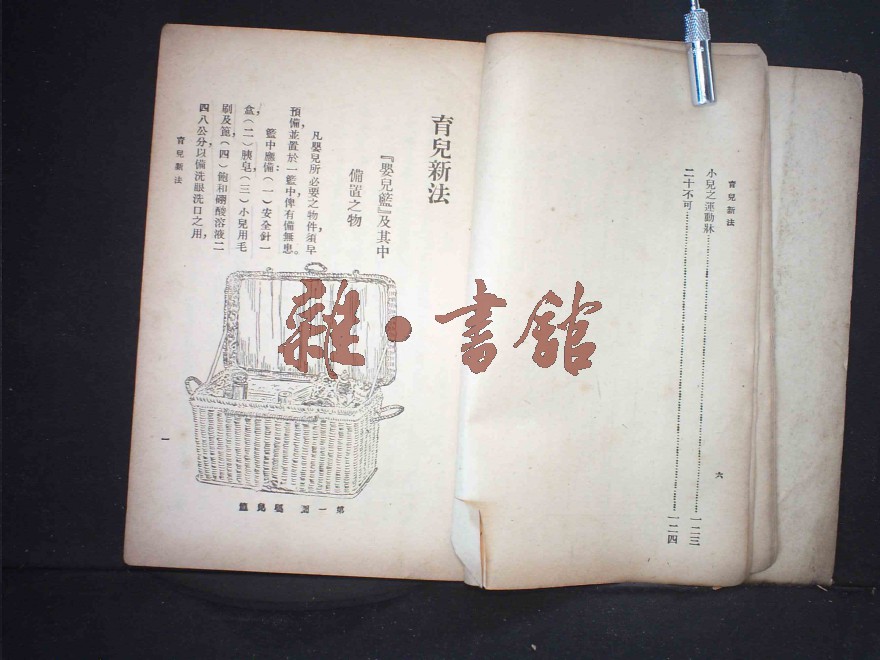 育兒新法
小兒之運動牀……一二三
二十不可……一二四
六
育兒新法
『嬰兒籃』及其中
備置之物
凡嬰兒所必要之物件，須早
預備並置於一籃中俾有備無患。
籃中應備：（一）安全針一
盒，（二）胰皂（三）小兒用毛
刷及篦，（四）飽和硼酸溶液二
四八公分以備洗眼洗口之用，
第一圖 嬰兒籃
育兒新法
一
雜·書館